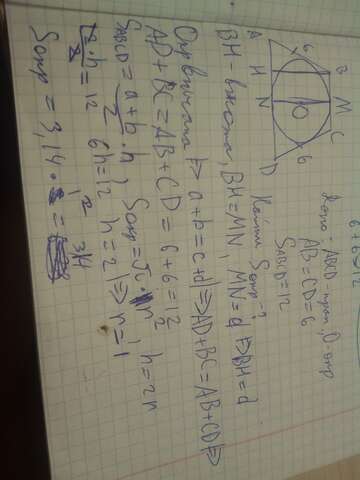 A
6
B
H
N
O
M
C
6
D
Дано: ABCD - трап, O - окр
AB = CD = 6
S_ABCD = 12
Найти S_окр - ?
BH - высота, BH = MN, MN = d ⇒ BH = d
Окр вписана ⇒ a + b = c + d ⇒ AD + BC = AB + CD ⇒
AD + BC = AB + CD = 6 + 6 = 12
S_ABCD = \frac{a + b}{2} · h, S_окр = π · r², h = 2r
\frac{12}{2} · h = 12 6h = 12 h = 2 ⇒ r = 1
S_окр = 3,14 · 1² = 3,14